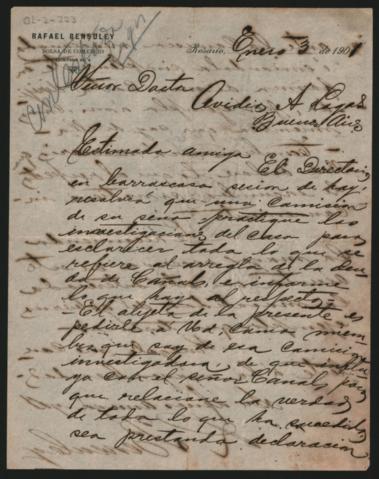 01-2-223
RAFAEL BENSULEY
BOLSA DE COMERCIO
Rosario, Enero 3 de 1901
Señor Doctor
Ovidio A Lagos
Buenos Aires
Estimado amigo
El Directorio
en borrascosa sesion de hoy
resolvió que una comision
de su seno practique las
investigaciones del caso para
esclarecer todo lo que se
refiere al arreglo de la deu-
da de Canals, e informe
lo que haya al respecto.
El objeto de la presente es
pedirle a Vd, como miem-
bro que soy de esa comision
investigadora, de que influ-
ya con el señor Canals, para
que relacione la verdad
de todo lo que ha sucedido,
sea prestando declaracion